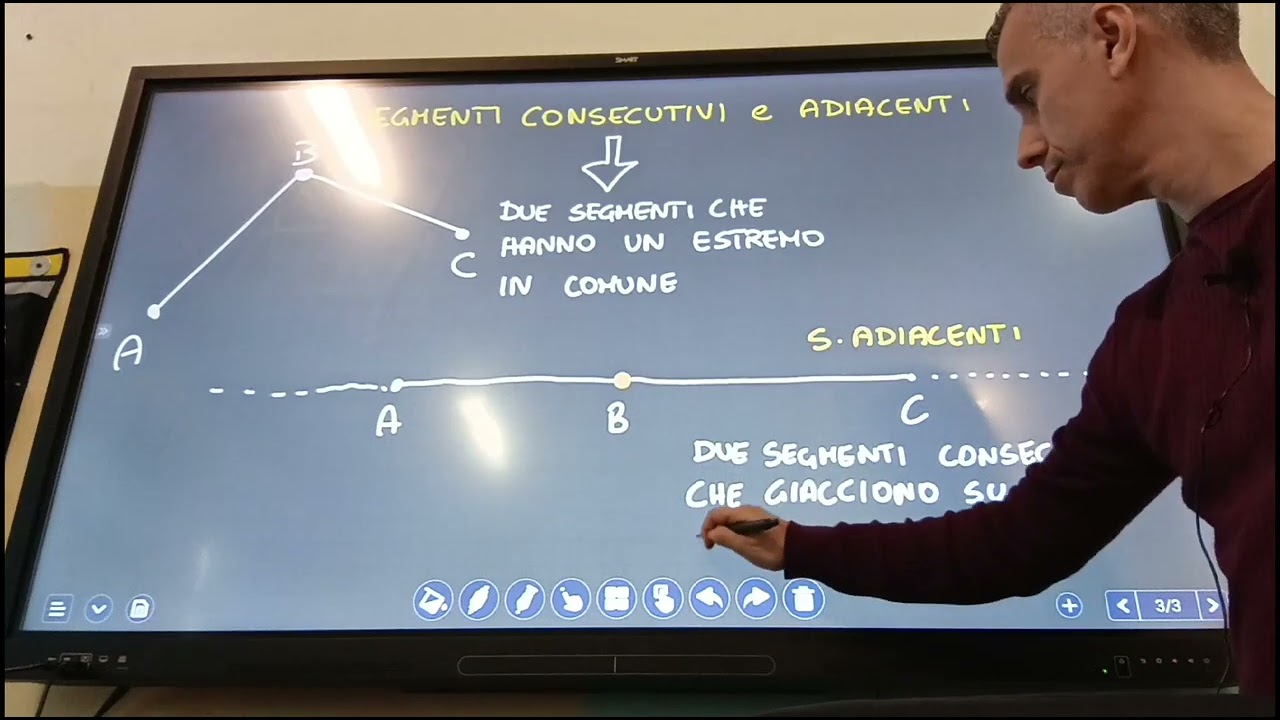 SMART
SEGMENTI CONSECUTIVI e ADIACENTI
B
DUE SEGMENTI CHE
HANNO UN ESTREMO
C
IN COMUNE
A
S. ADIACENTI
A
B
C
DUE SEGMENTI CONSEC
CHE GIACCIONO SU
3/3